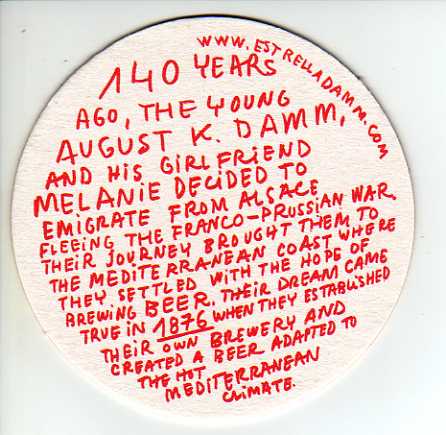 www.estrelladamm.com
140 YEARS
AGO, THE YOUNG
AUGUST K. DAMM,
AND HIS GIRLFRIEND
MELANIE DECIDED TO
EMIGRATE FROM ALSACE
FLEEING THE FRANCO-PRUSSIAN WAR.
THEIR JOURNEY BROUGHT THEM TO
THE MEDITERRANEAN COAST WHERE
THEY SETTLED WITH THE HOPE OF
BREWING BEER. THEIR DREAM CAME
TRUE IN 1876 WHEN THEY ESTABLISHED
THEIR OWN BREWERY AND
CREATED A BEER ADAPTED TO
THE HOT
MEDITERRANEAN
CLIMATE.